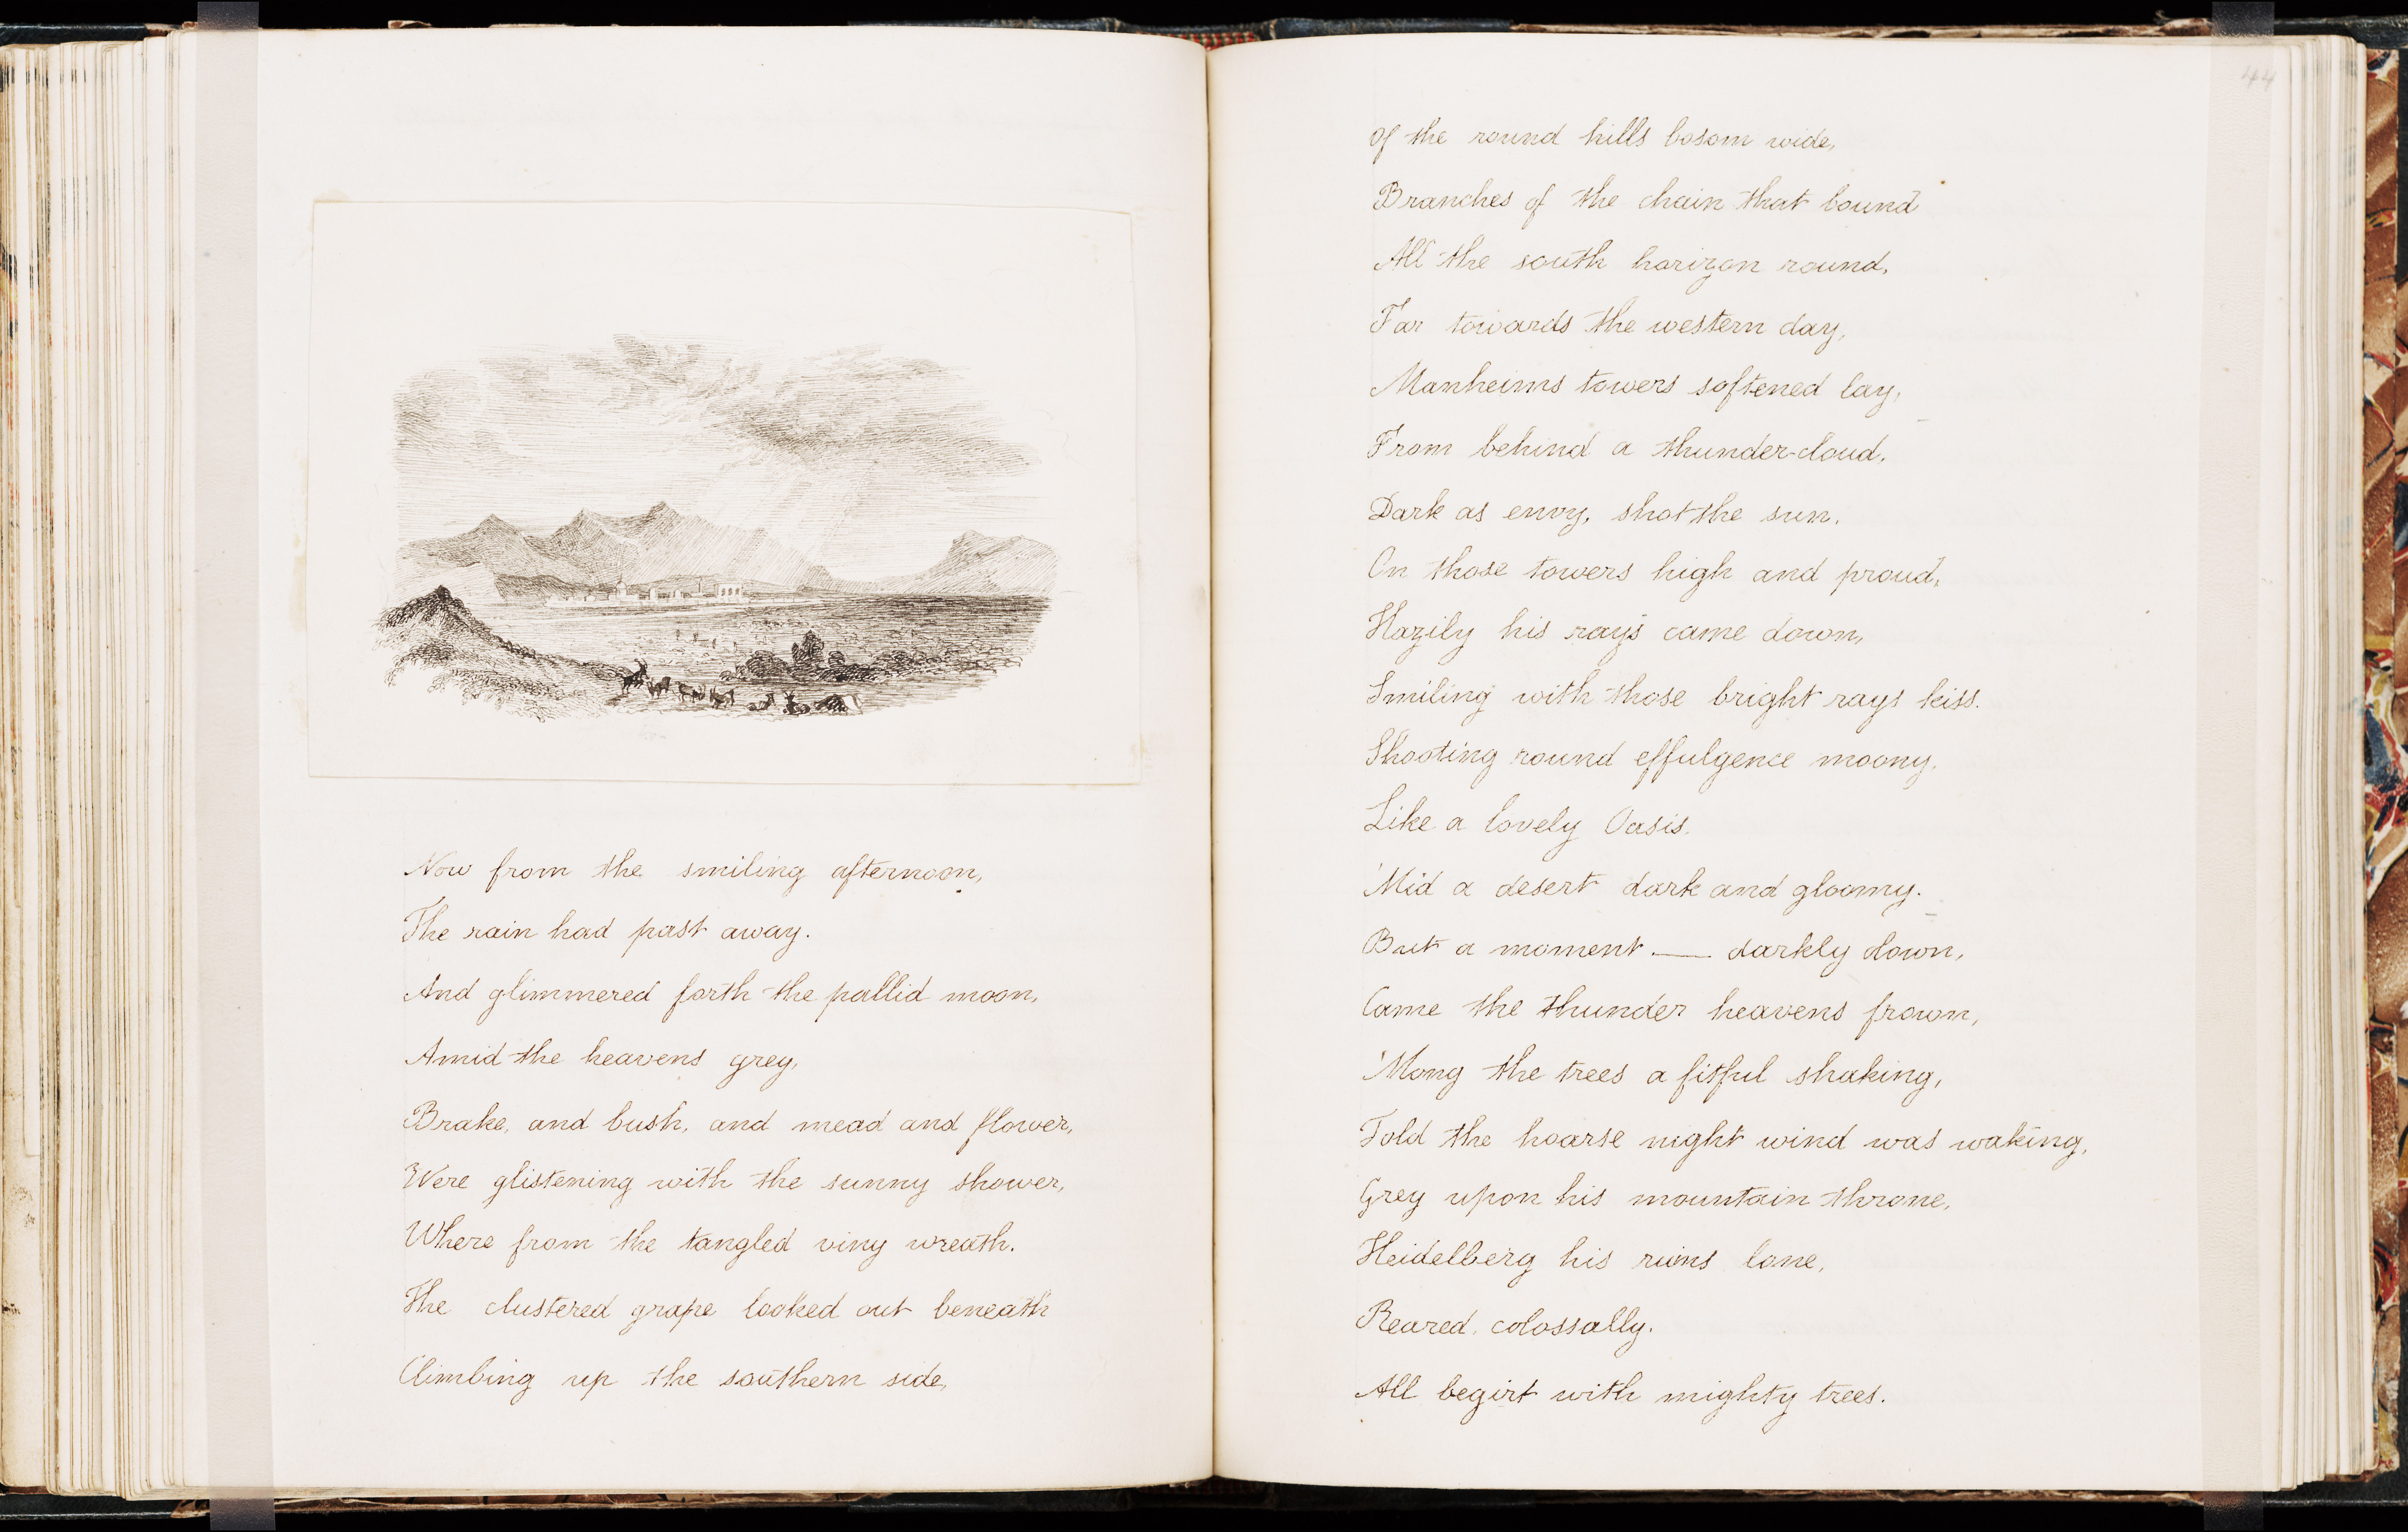 Now from the smiling afternoon,
The rain had past away.
And glimmered forth the pallid moon,
Amid the heavens grey,
Brake, and bush, and mead and flower,
Were glistening with the sunny shower,
Where from the tangled viny wreath.
The clustered grape looked out beneath
Climbing up the southern side,
44
Of the round hills bosom wide,
Branches of the chain that bound
All the south horizon round,
Far towards the western day,
Manheims towers softened lay,
From behind a thunder-cloud,
Dark as envy, shot the sun,
On those towers high and proud,
Hazily his rays came down,
Smiling with those bright rays kiss.
Shooting round effulgence moony.
Like a lovely Oasis.
'Mid a desert dark and gloomy.
But a moment — darkly down,
Came the thunder heavens frown,
'Mong the trees a fitful shaking,
Told the hoarse night wind was waking,
Grey upon his mountain throne,
Heidelberg his ruins lone,
Reared, colossally.
All begirt with mighty trees.